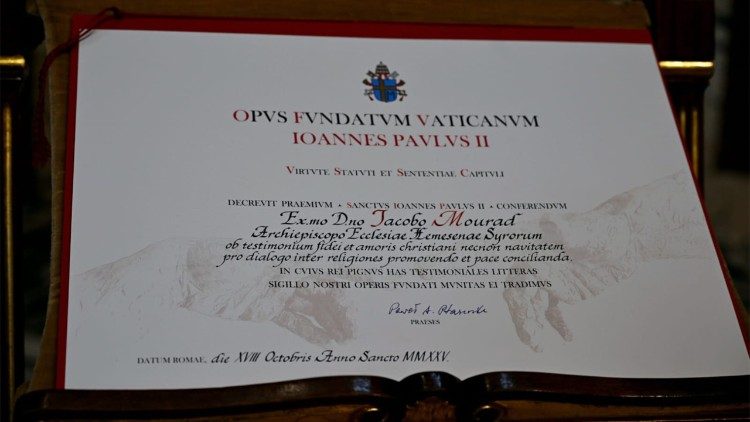 OPVS FVNDATVM VATICANVM
IOANNES PAVLVS II
VIRTVTE STATVTI ET SENTENTIAE CAPITVLI
DECREVIT PRAEMIVM • SANCTVS IOANNES PAVLVS II • CONFERENDVM
Ex.mo Dno Jacobo Mourad
Archiepiscopo Ecclesiae Hemesenae Syrorum
ob testimonium fidei et amoris christiani necnon navitatem
pro dialogo inter religiones promovendo et pace concilianda.
IN CVIVS REI PIGNVS HAS TESTIMONIALES LITTERAS
SIGILLO NOSTRI OPERIS FVNDATI MVNITAS EI TRADIMVS
Paweł A.
PRAESES
DATUM ROMAE, die XVIII Octobris Anno Sancto MMXXV.